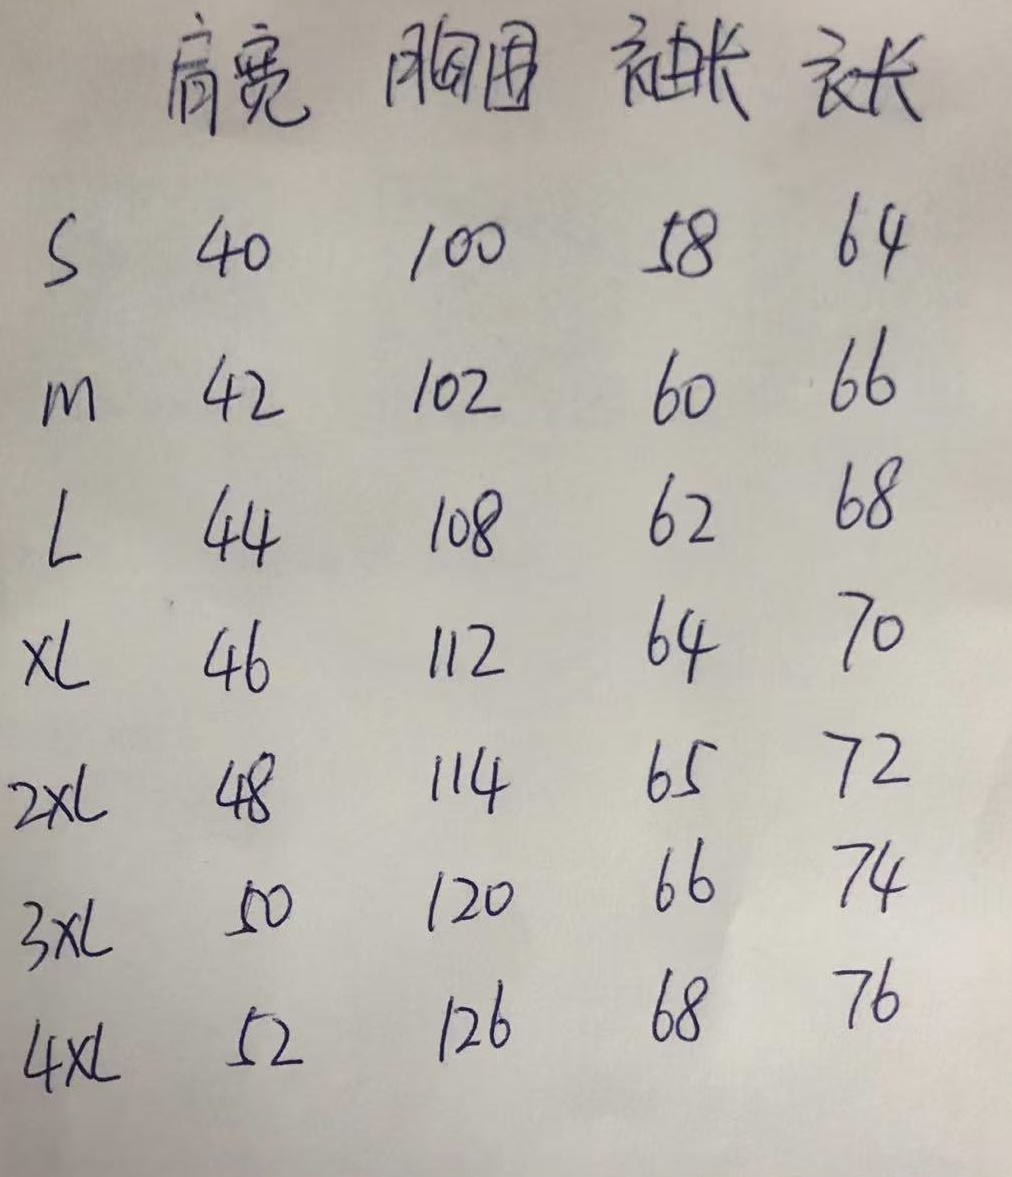 肩宽 胸围 袖长 衣长
S 40 100 58 64
M 42 102 60 66
L 44 108 62 68
XL 46 112 64 70
2XL 48 114 65 72
3XL 50 120 66 74
4XL 52 126 68 76